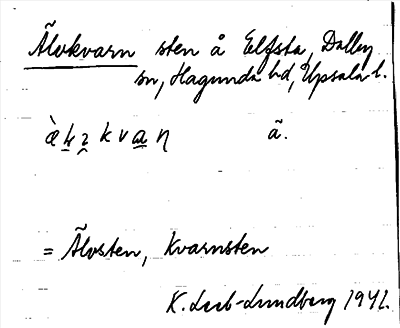 Älvkvarn sten å Elfsta, Dalby
sn, Hagunda hd, Upsala l.
kvaɳ ã.
= Älvsten, Kvarnsten
K. Leeb-Lundberg 1941.